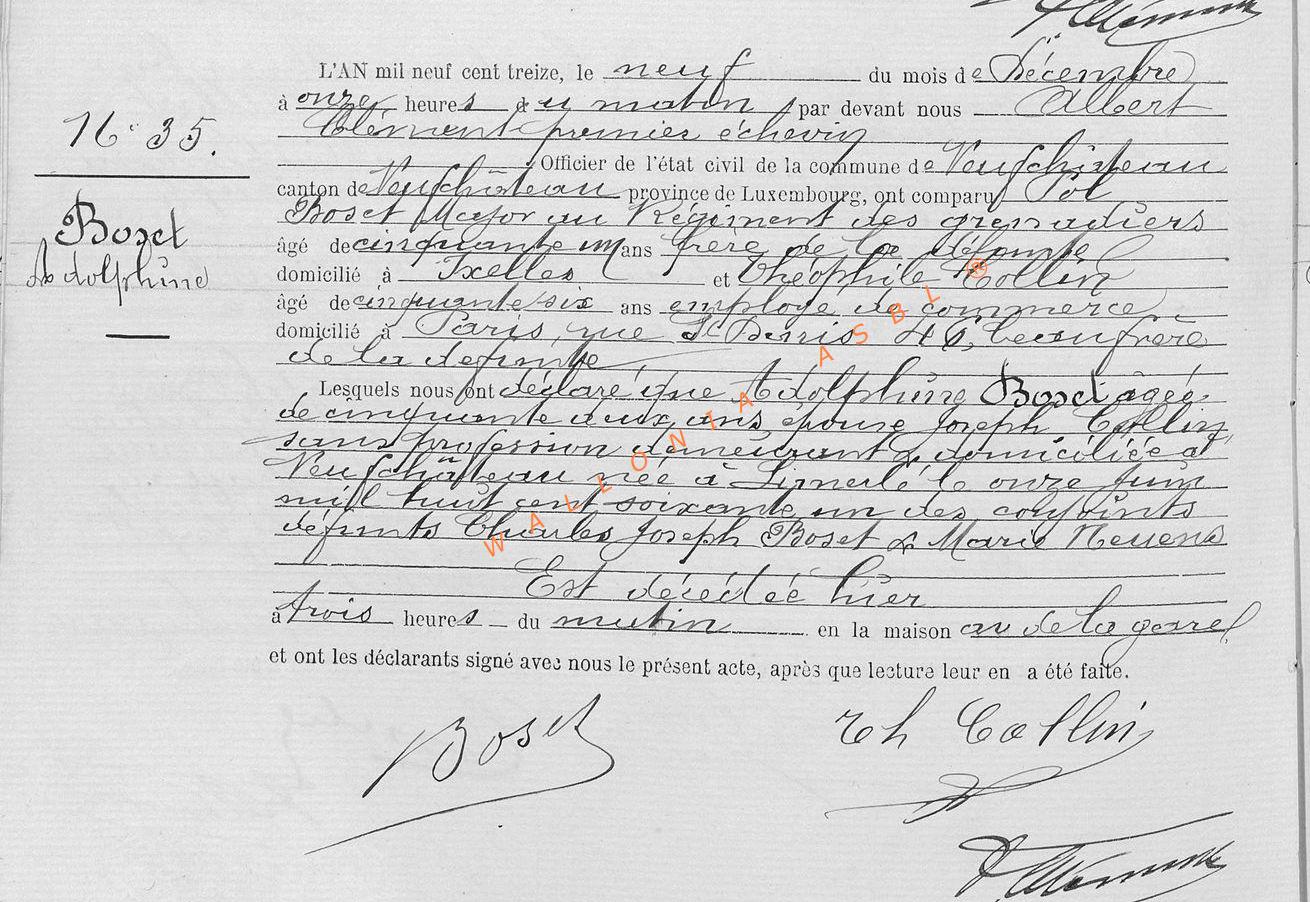 N° 35.
Boset
Adolphine
L'AN mil neuf cent treize, le neuf du mois de Décembre
à onze heures du matin, par devant nous Albert
Clément premier échevin
Officier de l'état civil de la commune de Neufchâteau
canton de Neufchâteau province de Luxembourg, ont comparu Pol
Boset Major au Régiment des grenadiers
âgé de cinquante un ans frère de la défunte
domicilié à Ixelles et Théophile Collin
âgé de cinquante six ans employé de commerce
domicilié à Paris, rue St Denis 46, beaufrère
de la défunte,
Lesquels nous ont déclaré que Adolphine Boset âgée
de cinquante deux ans, épouse Joseph Collin,
sans profession demeurant & domiciliée à
Neufchâteau née à Limerlé le onze juin
mil huit cent soixante un des conjoints
défunts Charles Joseph Boset & Marie Neuens
Est décédée hier
à trois heures du matin en la maison av de la gare
et ont les déclarants signé avec nous le présent acte, après que lecture leur en a été faite.
Boset
Th Collin
A Clément
WALLONIA ASBL ®